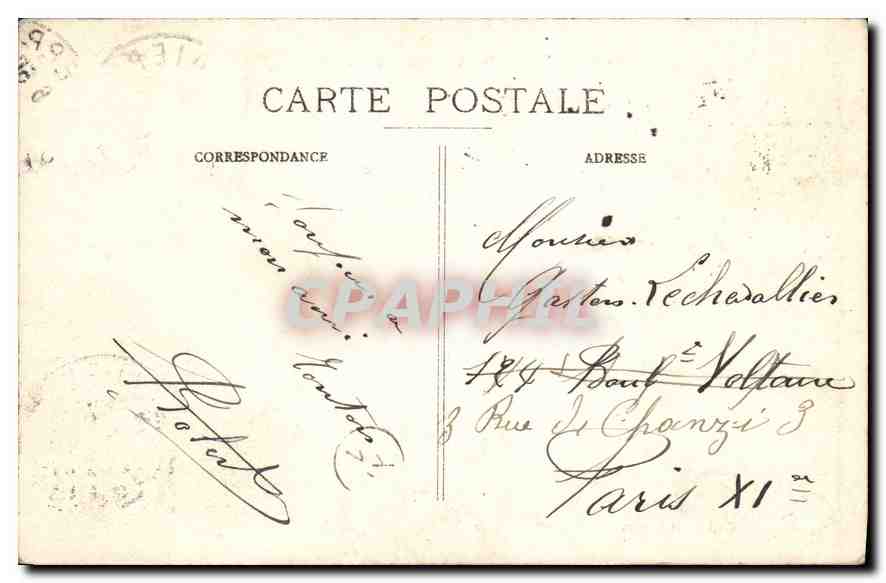 CARTE POSTALE
CORRESPONDANCE
ADRESSE
mon ami
Robert
Monsieur
Gaston Lechevallier
174 Boulᵈ Voltaire
3 Rue de Chanzi 3
Paris XIe
CPAPHIL